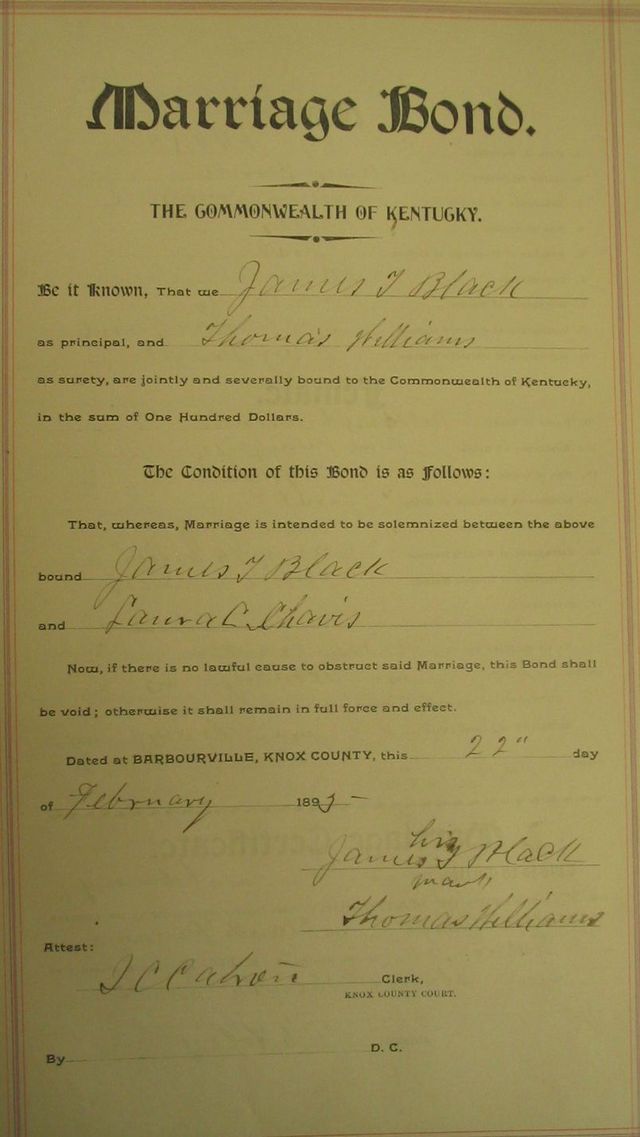 Marriage Bond.
THE COMMONWEALTH OF KENTUCKY.
Be it Known, That we James T Black
as principal, and Thomas Williams
as surety, are jointly and severally bound to the Commonwealth of Kentucky,
in the sum of One Hundred Dollars.
The Condition of this Bond is as Follows:
That, whereas, Marriage is intended to be solemnized between the above
bound James T Black
and Laura C. Chavis
Now, if there is no lawful cause to obstruct said Marriage, this Bond shall
be void; otherwise it shall remain in full force and effect.
Dated at BARBOURVILLE, KNOX COUNTY, this 22" day
of February 189
his
James T Black
mark
Thomas Williams
Attest:
Clerk,
KNOX COUNTY COURT.
By D. C.